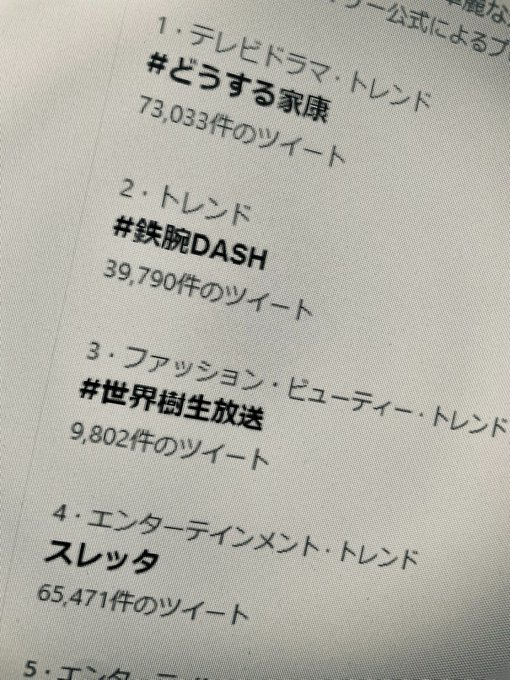 ー公式によるプ
1・テレビドラマ・トレンド
#どうする家康
73,033件のツイート
2・トレンド
#鉄腕DASH
39,790件のツイート
3・ファッション・ビューティー・トレンド
#世界樹生放送
9,802件のツイート
4・エンターテインメント・トレンド
スレッタ
65,471件のツイート
5・エンター